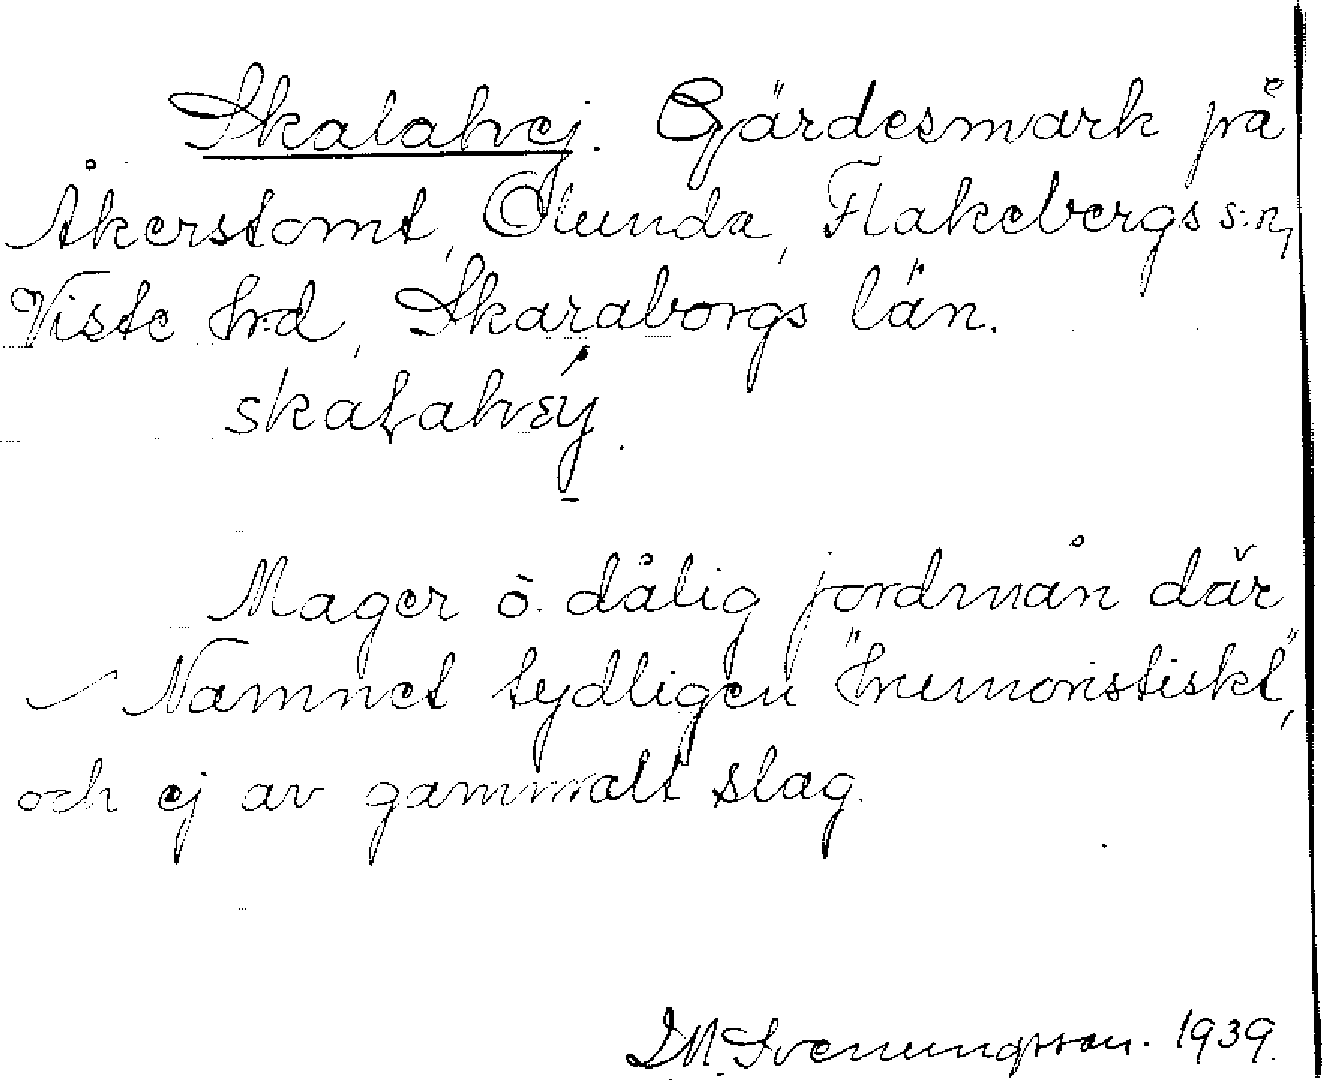 Skalahej. Gärdesmark på
Åkerstomt, Ölunda, Flakebergs s:n,
Viste hrd, Skaraborgs län.
skaḷahɛj.
Mager o. dålig jordmån där
Namnet tydligen "humoristiskt",
och ej av gammalt slag.
Svenungsson. 1939.